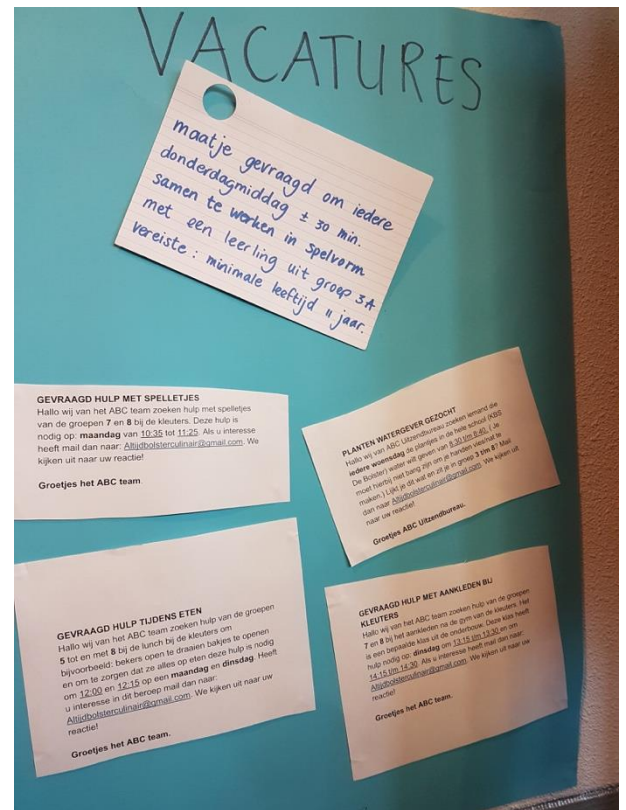 VACATURES
maatje gevraagd om iedere
donderdagmiddag ± 30 min.
samen te werken in spelvorm
met een leerling uit groep 3A
vereiste : minimale leeftijd 11 jaar.
GEVRAAGD HULP MET SPELLETJES
Hallo wij van het ABC team zoeken hulp met spelletjes
van de groepen 7 en 8 bij de kleuters. Deze hulp is
nodig op: maandag van 10:35 tot 11:25. Als u interesse
heeft mail dan naar: Altijdbolsterculinair@gmail.com. We
kijken uit naar uw reactie!
Groetjes het ABC team
PLANTEN WATERGEVER GEZOCHT
Hallo wij van ABC Uitzendbureau zoeken iemand die
iedere woensdag de plantjes in de hele school (KBS
De Bolster) water wil geven van 8:30 t/m 8:40. ( Je
moet hierbij niet bang zijn om je handen vies/nat te
maken.) Lijkt je dit wat en zit je in groep 3 t/m 8? Mail
dan naar Altijdbolsterculinair@gmail.com. We kijken uit
naar uw reactie!
Groetjes ABC Uitzendbureau.
GEVRAAGD HULP TIJDENS ETEN
Hallo wij van het ABC team zoeken hulp van de groepen
5 tot en met 8 bij de lunch bij de kleuters om
bijvoorbeeld: bekers open te draaien bakjes te openen
en om te zorgen dat ze alles op eten deze hulp is nodig
om 12:00 en 12:15 op een maandag en dinsdag. Heeft
u interesse in dit beroep mail dan naar:
Altijdbolsterculinair@gmail.com. We kijken uit naar uw
reactie!
Groetjes het ABC team.
GEVRAAGD HULP MET AANKLEDEN BIJ
KLEUTERS
Hallo wij van het ABC team zoeken hulp van de groepen
7 en 8 bij het aankleden na de gym van de kleuters. Het
is een bepaalde klas uit de onderbouw. Deze klas heeft
hulp nodig op: dinsdag om 13:15 t/m 13:30 en om
14:15 t/m 14:30. Als u interesse heeft mail dan naar:
Altijdbolsterculinair@gmail.com. We kijken uit naar uw
reactie!
Groetjes het ABC team.